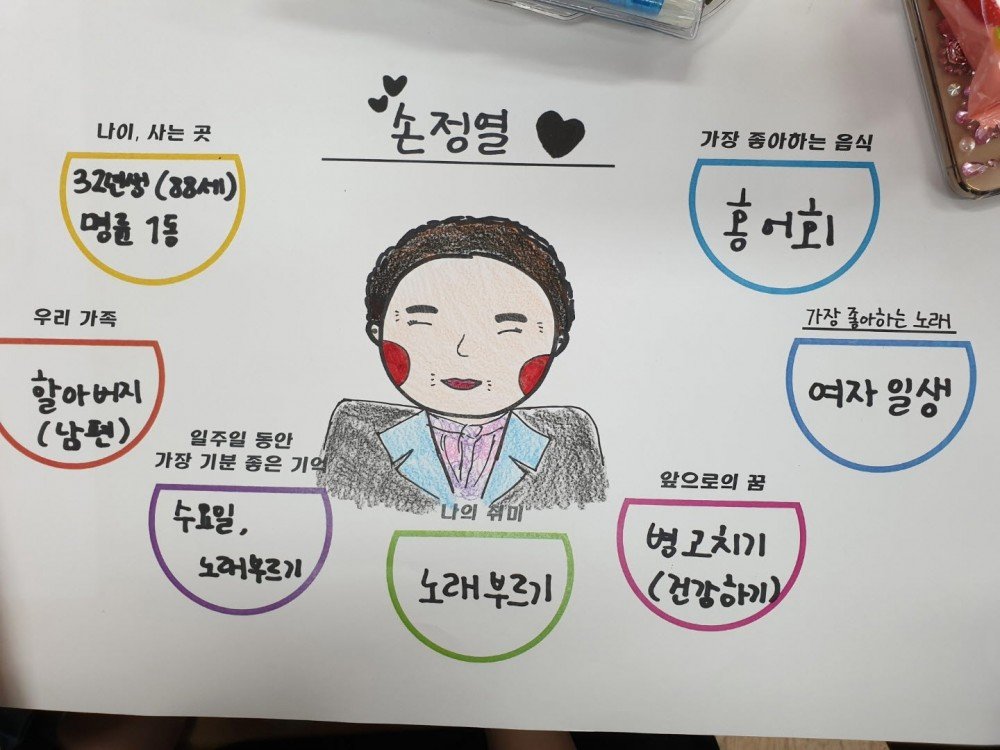 손정열
나이, 사는 곳
32년생 (88세)
명륜 1동
가장 좋아하는 음식
홍어회
우리 가족
할아버지
(남편)
가장 좋아하는 노래
여자 일생
일주일 동안
가장 기분 좋은 기억
수요일,
노래부르기
나의 취미
노래 부르기
앞으로의 꿈
병고치기
(건강하기)